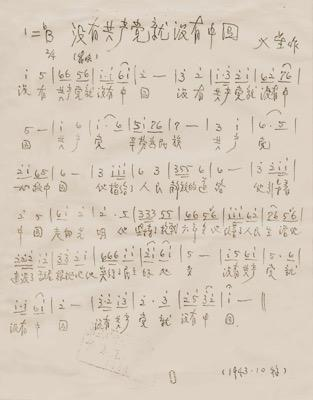 1=♭B 没有共产党就没有中国 火星作
2/4
i 5 | 66 56 | i·i 6i | 2 — | 3 2 | i·3 2i | 62 76 |
没 有 共产党就没有中 国 没 有 共产党就没有中
5 — | i 6 | i — 6 | 5i 76 | 7 — | 3 i | 6·5 |
国 共 产 党 辛劳为民族 共 产 党
2i 65 | 6 — | 3 iii | 6 3 | 355 6 | 6 — | 3 3ii |
一心救中国 他指给了人民 解放的道路 他引导着
中国走向光明 他坚持了抗战六年多 他改善了人民生活 他
建设了敌后根据地 他实行了民主好处多 没有共产党就
i·i 6i | 2 — | 3·2 i3 | 2·3 | 25 32 | i — ‖
没有中国 没有共产党就没有中国
(1943·10稿)